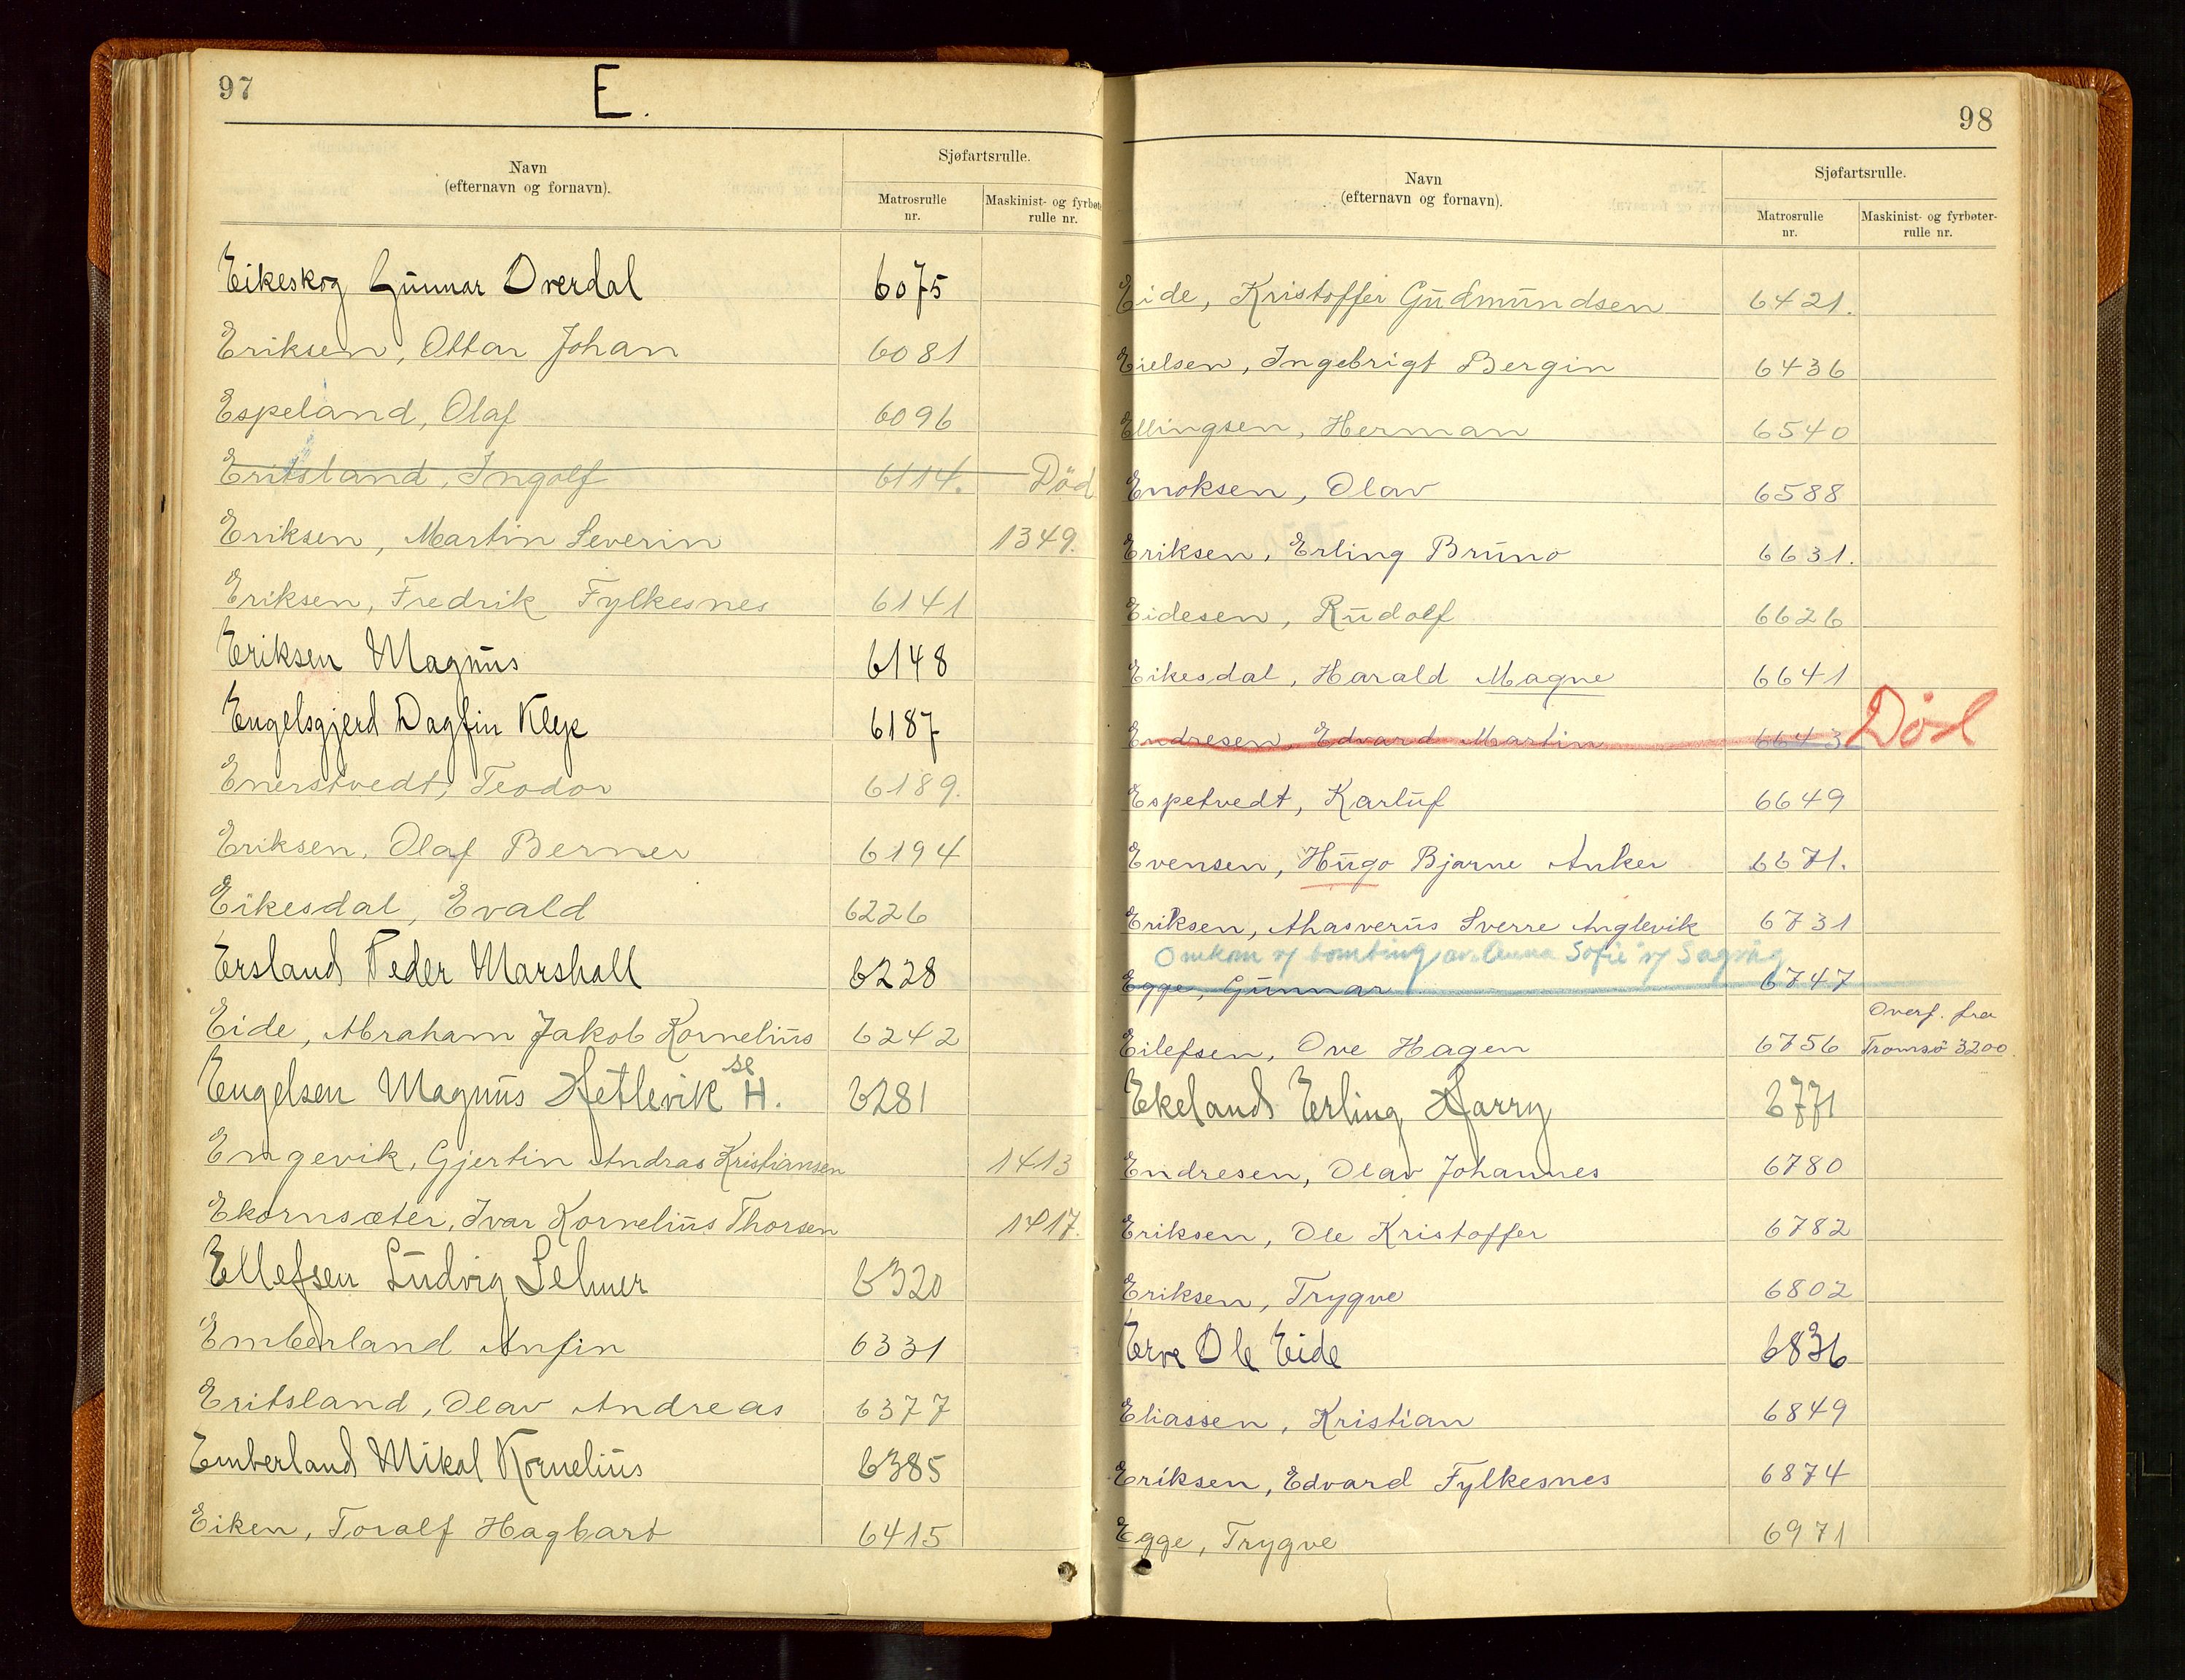 97
E.
Navn
(efternavn og fornavn).
Sjøfartsrulle.
Matrosrulle nr.
Maskinist- og fyrbøter-rulle nr.
Eikeskog Gunnar Overdal 6075
Eriksen, Ottar Johan 6081
Espeland, Olaf 6096
Eritsland, Ingolf 6114. Död
Eriksen, Martin Severin 1349.
Eriksen, Fredrik Fylkesnes 6141
Eriksen Magnus 6148
Engelsgjerd Dagfin Kleje 6187
Enerstvedt, Teodor 6189.
Eriksen, Olaf Berner 6194
Eikesdal, Evald 6226
Ersland Peder Marshall 6228
Eide, Abraham Jakob Kornelius 6242
Engelsen Magnus Hetlevik se H. 6281
Engevik, Gjertin Andras Kristiansen 1413
Ekornsæter, Ivar Kornelius Thorsen 1417.
Ellefsen Ludvig Selmer 6320
Emberland Anfin 6331
Eritsland, Olav Andreas 6377
Emberland Mikal Kornelius 6385
Eiken, Toralf Hagbart 6415
98
Navn
(efternavn og fornavn).
Sjøfartsrulle.
Matrosrulle nr.
Maskinist- og fyrbøter-rulle nr.
Eide, Kristoffer Gudmundsen 6421.
Eielsen, Ingebrigt Bergin 6436
Ellingsen, Herman 6540
Enoksen, Olav 6588
Eriksen, Erling Bruno 6631.
Eidesen, Rudolf 6626
Eikesdal, Harald Magne 6641
Endresen, Edvard Martin 6643 Död
Espetvedt, Karluf 6649
Evensen, Hugo Bjarne Anker 6671.
Eriksen, Ahasverus Sverre Anglevik 6731
Omkom v/ bombing av "Anna Sofie" v/ Sagvåg
Egge, Gunnar 6747
Eilefsen, Ove Hagen 6756 Overf. fra Tromsö 3200.
Ekeland Erling Harry 6771
Endresen, Olav Johannes 6780
Eriksen, Ole Kristoffer 6782
Eriksen, Trygve 6802
Erve Ole Eide 6836
Eliassen, Kristian 6849
Eriksen, Edvard Fylkesnes 6874
Egge, Trygve 6971